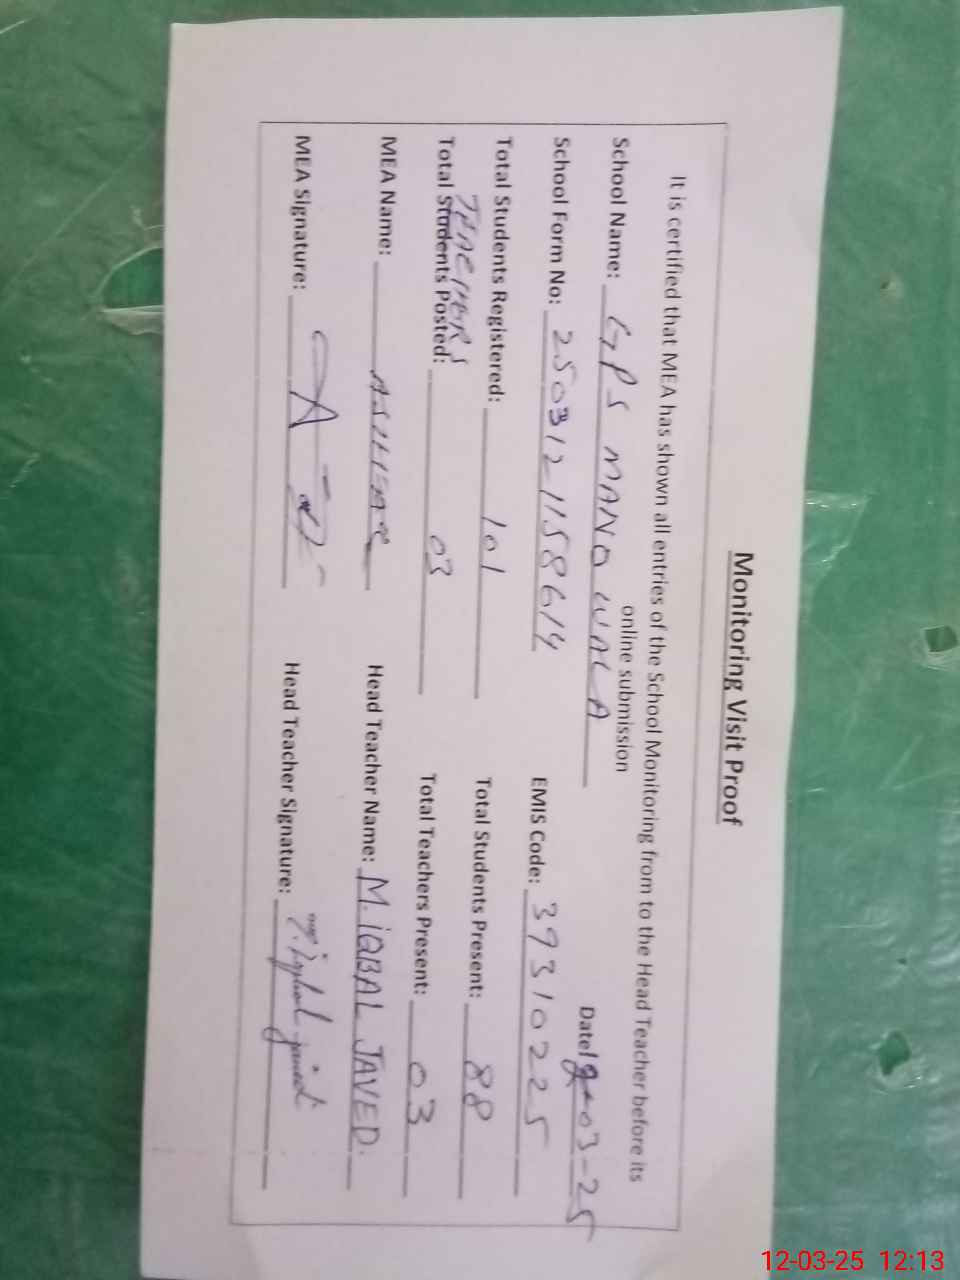 Monitoring Visit Proof
It is certified that MEA has shown all entries of the School Monitoring from to the Head Teacher before its
online submission
School Name: GPS MANO WALA Date: 03-25
School Form No: 2503121158614 EMIS Code: 39310225
Total Students Registered: 101 Total Students Present: 88
TEACHERS
Total Students Posted: 03 Total Teachers Present: 03
MEA Name: Head Teacher Name: M. IQBAL JAVED.
MEA Signature: Head Teacher Signature:
12-03-25 12:13